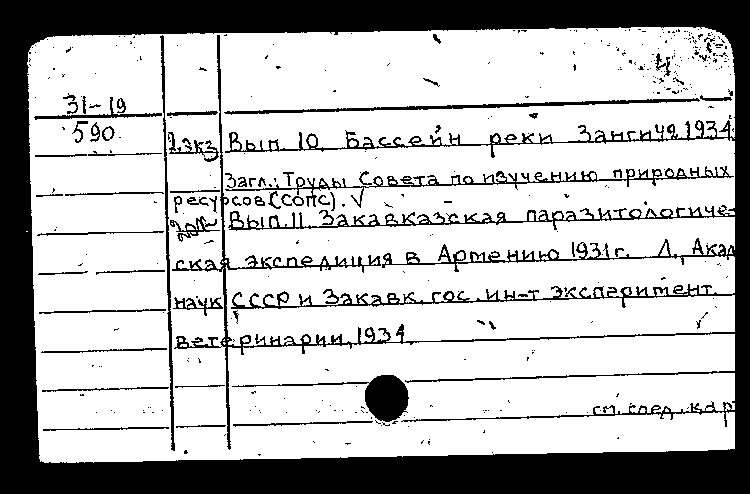 4
31-19
590
2.экз Вып. 10. Бассейн реки Занги, ч2 1934
Загл.: Труды Совета по изучению природных
ресурсов (СОПС). V
Вып. 11. Закавказская паразитологиче-
ская экспедиция в Армению 1931 г. Л., Акад
наук СССР и Закавк. гос. ин-т эксперимент.
ветеринарии, 1934.
см. след. кар